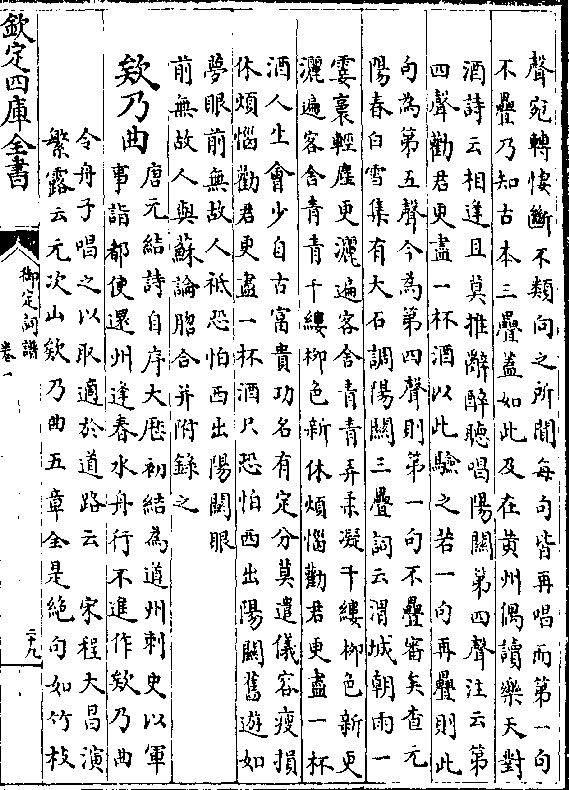 聲宛轉悽斷不類向之所聞每句皆再唱而第一句
不疊乃知古本三疊蓋如此及在黄州偶讀樂天對
酒詩云相逢且莫推辭醉聽唱陽關第四聲注云第
四聲勸君更盡一杯酒以此驗之若一句再疊則此
句為第五聲今為第四聲則第一句不疊審矣查元
陽春白雪集有大石調陽關三疊詞云渭城朝雨一
霎裛輕塵更灑遍客舍青青弄柔凝千縷柳色新更
灑遍客舍青青千縷柳色新休煩惱勸君更盡一杯
酒人生會少自古富貴功名有定分莫遣儀容瘦損
休煩惱勸君更盡一杯酒只恐怕西出陽關舊遊如
夢眼前無故人祗恐怕西出陽關眼
前無故人與蘇論脗合并附錄之
欸乃曲
唐元結詩自序大厯初結為道州刺史以軍
事詣都使還州逢春水舟行不進作欸乃曲
令舟子唱之以取適於道路云 宋程大昌演
繁露云元次山欸乃曲五章全是絶句如竹枝
欽定四庫全書
御定詞譜
卷一
二十九